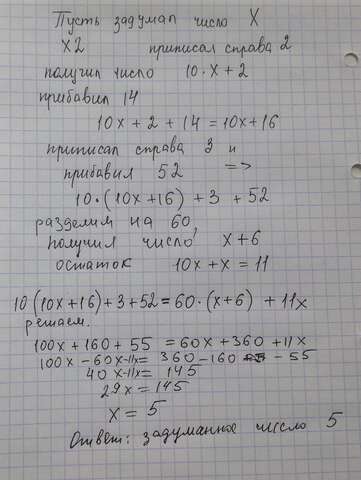 Пусть задумал число X
X2 приписал справа 2
получил число 10·X+2
прибавил 14
10X+2+14=10X+16
приписал справа 3 и
прибавил 52 =>
10·(10X+16)+3+52
разделим на 60,
получил число X+6
остаток 10X+X=11
10(10X+16)+3+52=60·(X+6)+11X
решаем.
100X+160+55=60X+360+11X
100X-60X-11X=360-160-55
40X-11X=145
29X=145
X=5
Ответ: задуманное число 5